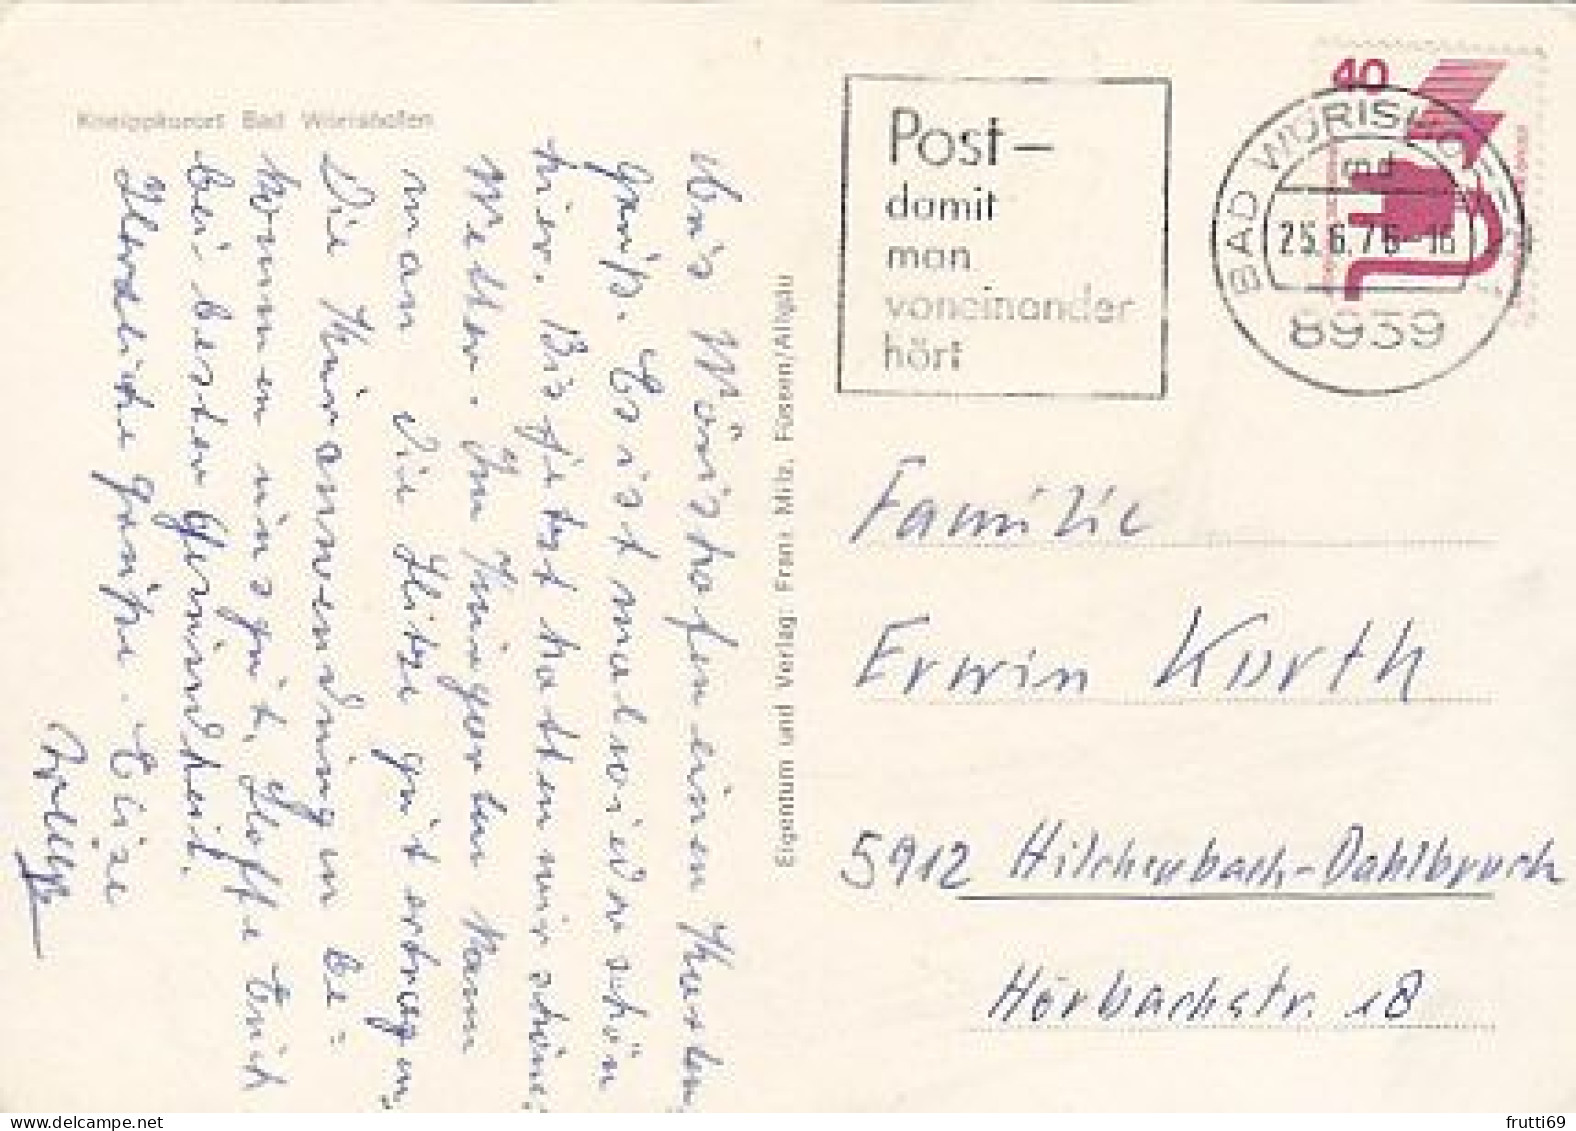 Kneippkurort Bad Wörishofen
Aus Wörishofen einen Kurlen
Gruß. Es ist mal wieder schön
hier. Bis jetzt hatten wir schöne
Wetter. Im Kurgarten kann
man die Hitze gut ertragen
Die Kuranwendungen be=
kommen uns gut, Hoffe Euch
bei bester Gesundheit.
Herzliche Grüße. Eure
Eigentum und Verlag: Franz Milz, Füssen/Allgäu
Post-
damit
man
voneinander
hört
40
BAD WÖRISHOFEN 1
md
25.6.76-16
8939
Familie
Erwin Korth
5912 Hilchenbach-Dahlbruch
Hörbachstr. 18
frutti69